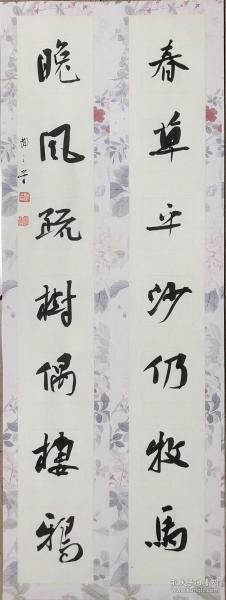 春草平沙仍牧馬
晚风疏樹偶棲鴉